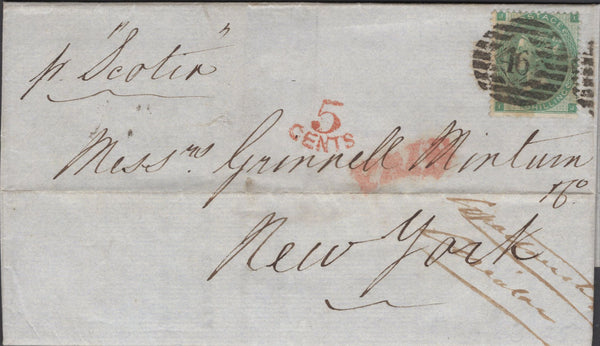 p. "Scotia"
16
5
CENTS
PAID
Mess.rs Grinnell Minturn
New York